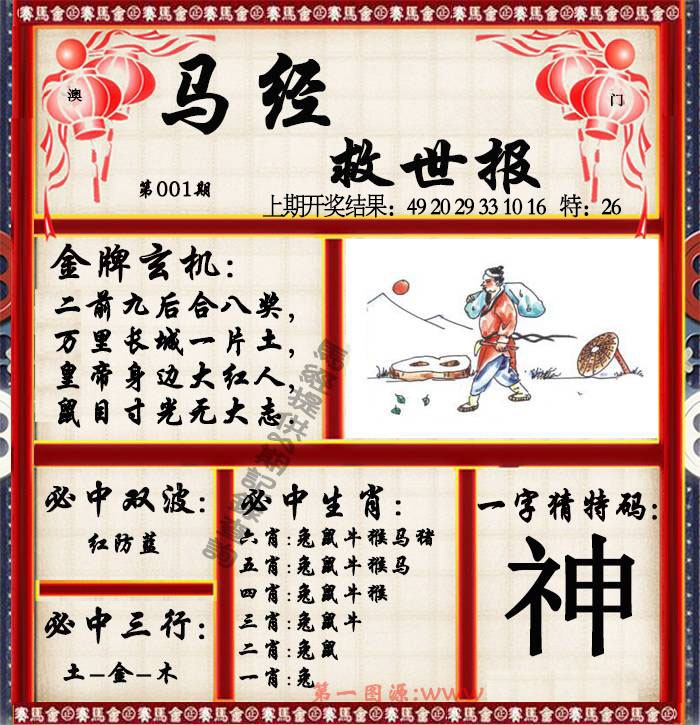 賽馬會 賽馬會 賽馬會 賽馬會 賽馬會 賽馬會 賽馬會 賽馬會
澳
门
马经
救世报
第001期
上期开奖结果：49 20 29 33 10 16 特：26
金牌玄机：
二前九后合八奖，
万里长城一片土，
皇帝身边大红人，
鼠目寸光无大志.
必中双波：
红防蓝
必中三行：
土–金–木
必中生肖：
六肖:兔鼠牛猴马猪
五肖:兔鼠牛猴马
四肖:兔鼠牛猴
三肖:兔鼠牛
二肖:兔鼠
一肖:兔
一字猜特码:
神
第一图源:www